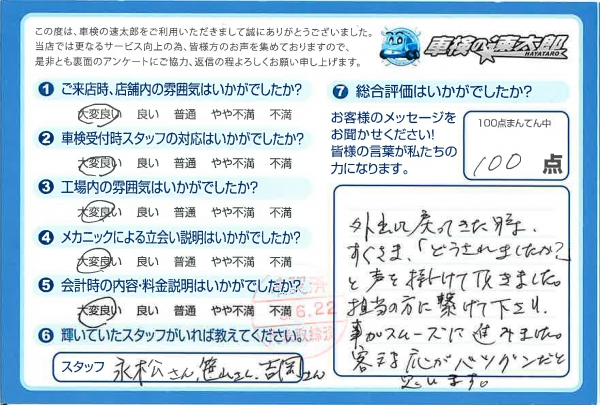 この度は、車検の速太郎をご利用いただきまして誠にありがとうございました。
当店では更なるサービス向上の為、皆様方のお声を集めておりますので、
是非とも裏面のアンケートにご協力、返信の程よろしくお願い申し上げます。
車検の速太郎
HAYATARO
1 ご来店時、店舗内の雰囲気はいかがでしたか?
大変良い 良い 普通 やや不満 不満
2 車検受付時スタッフの対応はいかがでしたか?
大変良い 良い 普通 やや不満 不満
3 工場内の雰囲気はいかがでしたか?
大変良い 良い 普通 やや不満 不満
4 メカニックによる立会い説明はいかがでしたか?
大変良い 良い 普通 やや不満 不満
5 会計時の内容・料金説明はいかがでしたか?
大変良い 良い 普通 やや不満 不満
6 輝いていたスタッフがいれば教えてください。
スタッフ 永松さん、笹山さん、吉岡さん
6.22
7 総合評価はいかがでしたか?
お客様のメッセージを
お聞かせください!
皆様の言葉が私たちの
力になります。
100点まんてん中
100 点
外出に戻ってきた時、
すぐさま、「どうされましたか?」
と声を掛けて頂きました。
担当の方に繋げて下さり、
事がスムーズに進みました。
客さま応がバツグンだと
思います。